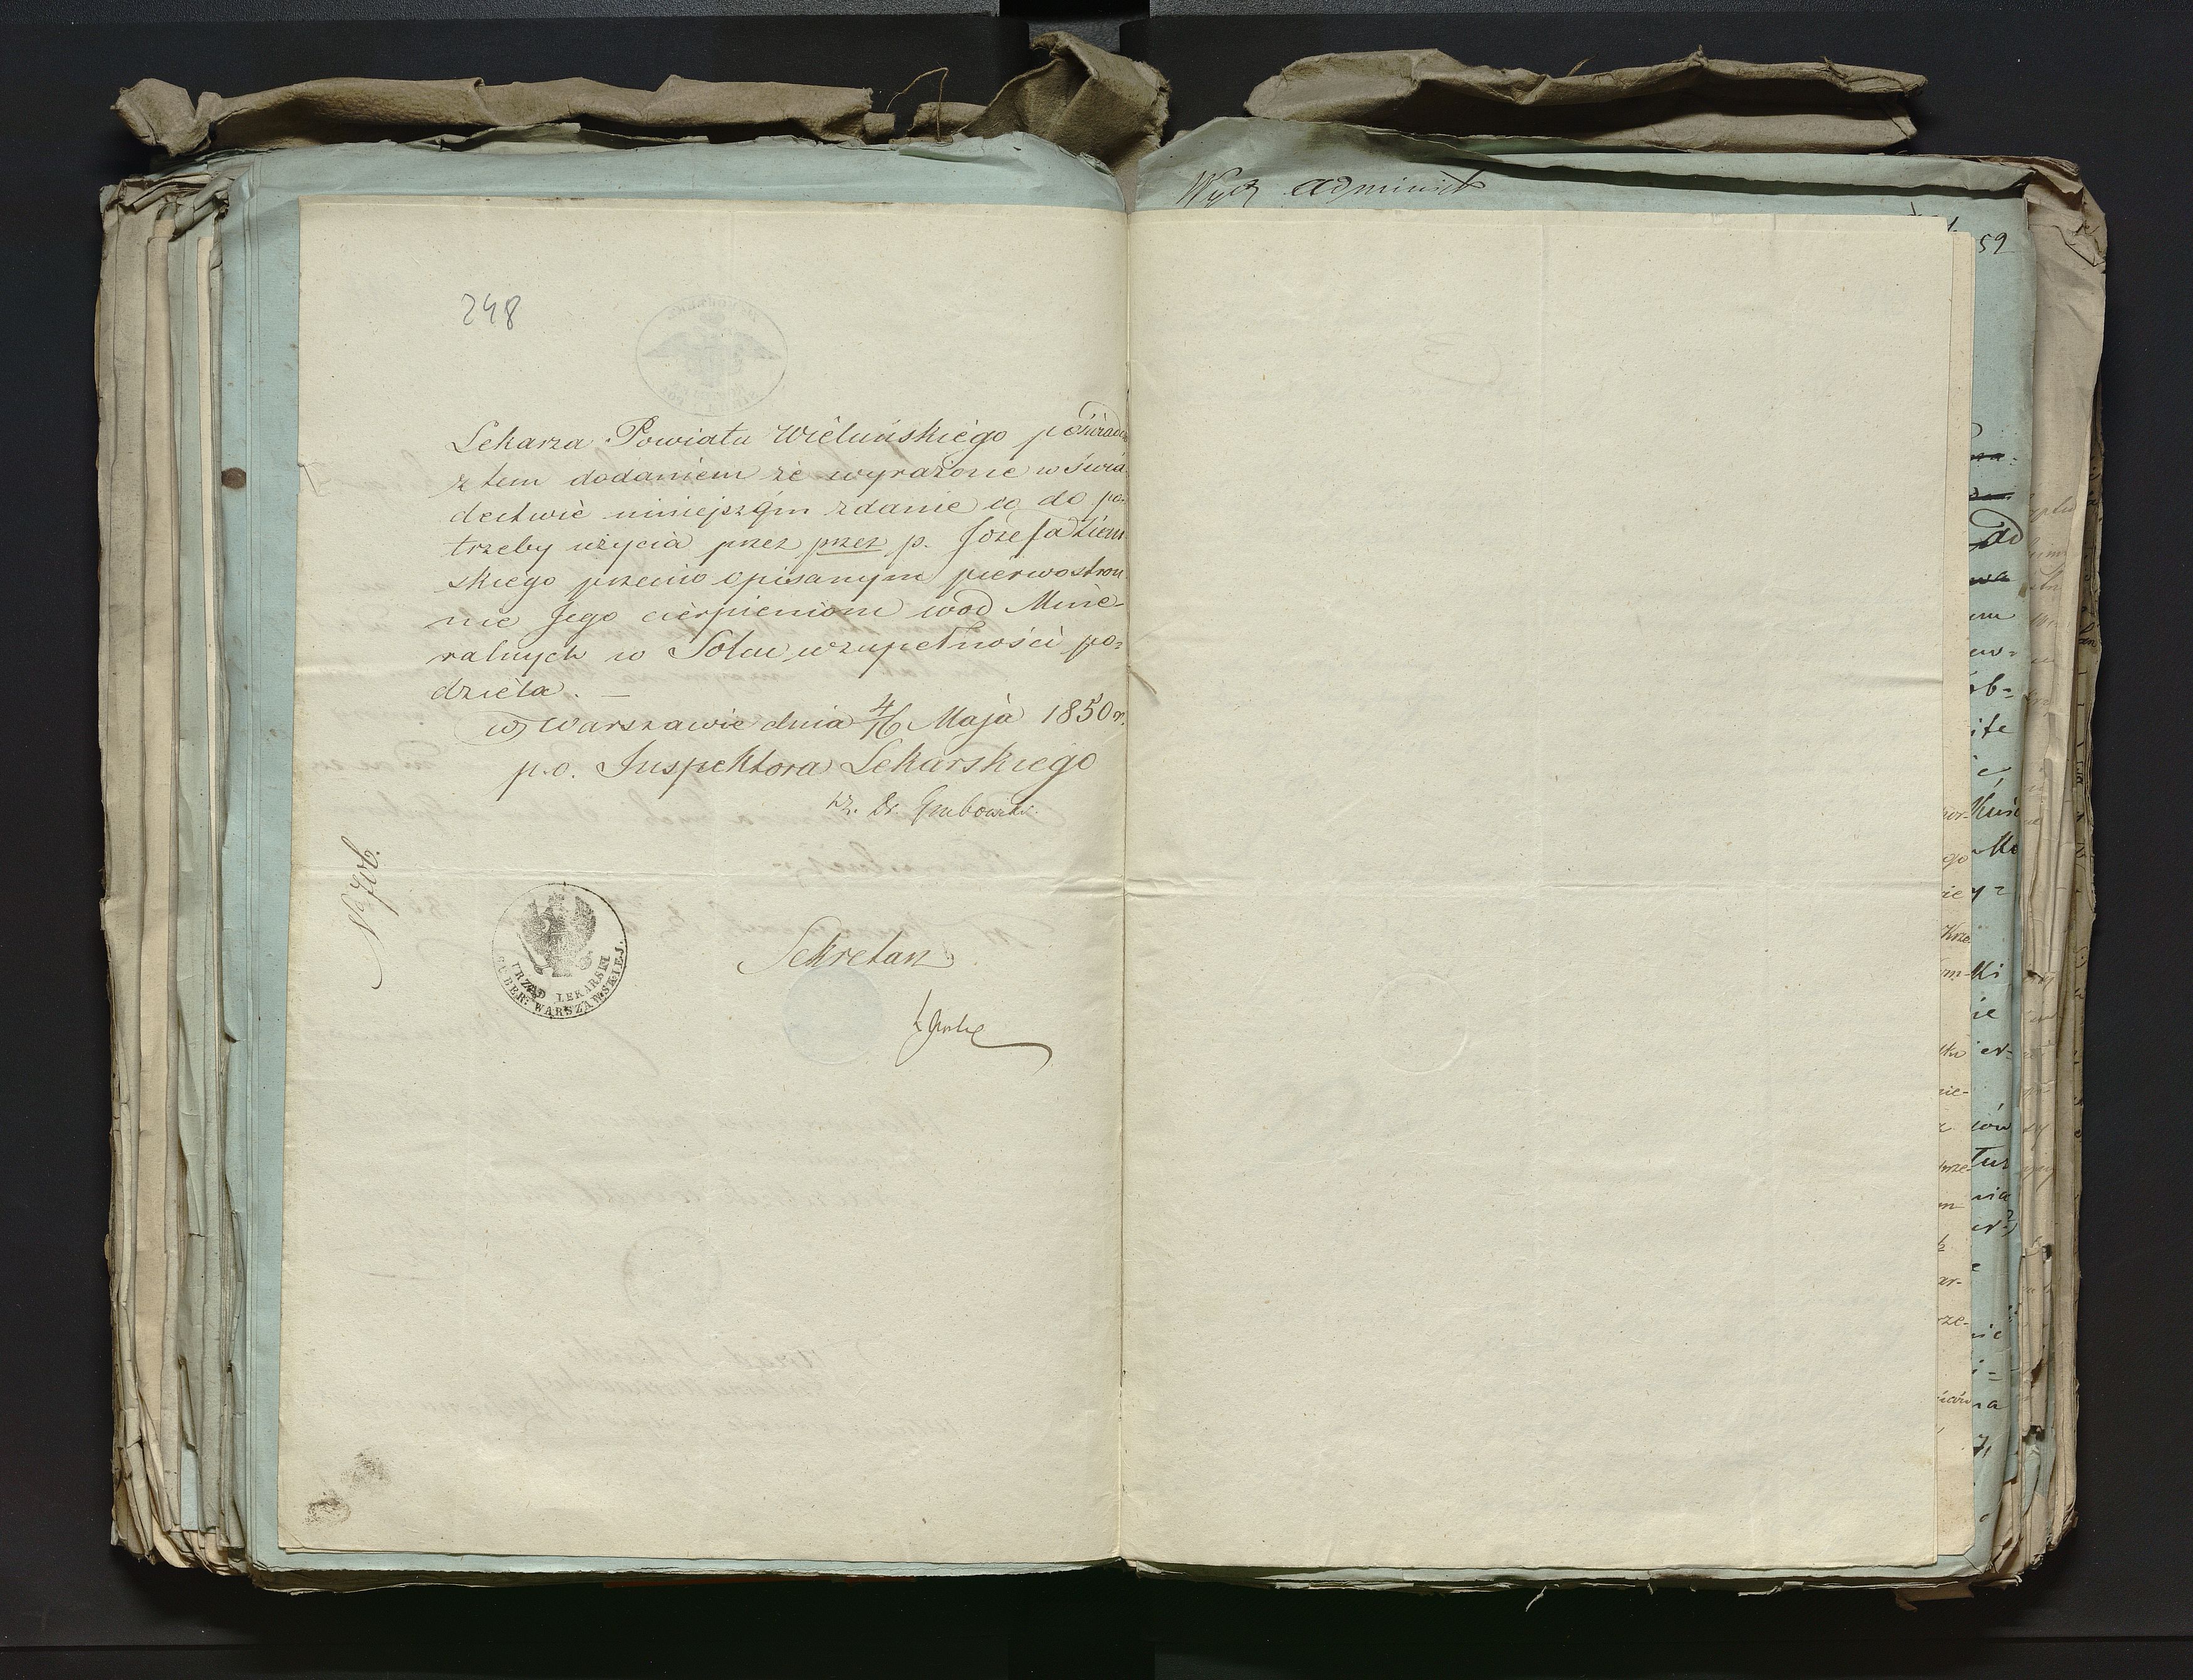 248
Lekarza Powiatu Wieluńskiego poświadcz
z tem dodaniem że wyrażone w świa
dectwie niniejszym zdanie co do po=
trzeby użycia przez przez p. Józefa Ziem
skiego przeciw opisanym pierwostron
nie Jego cierpieniom wód Mine-
ralnych w Solcu w zupełności po=
dziela. —
w Warszawie dnia 4/16 Maja 1850 r.
p.o. Inspektora Lekarskiego
Dr. Grabowski
No 706.
URZĄD LEKARSKI
GUBER: WARSZAWSKIEJ.
Sekretarz
Wydz administr
59